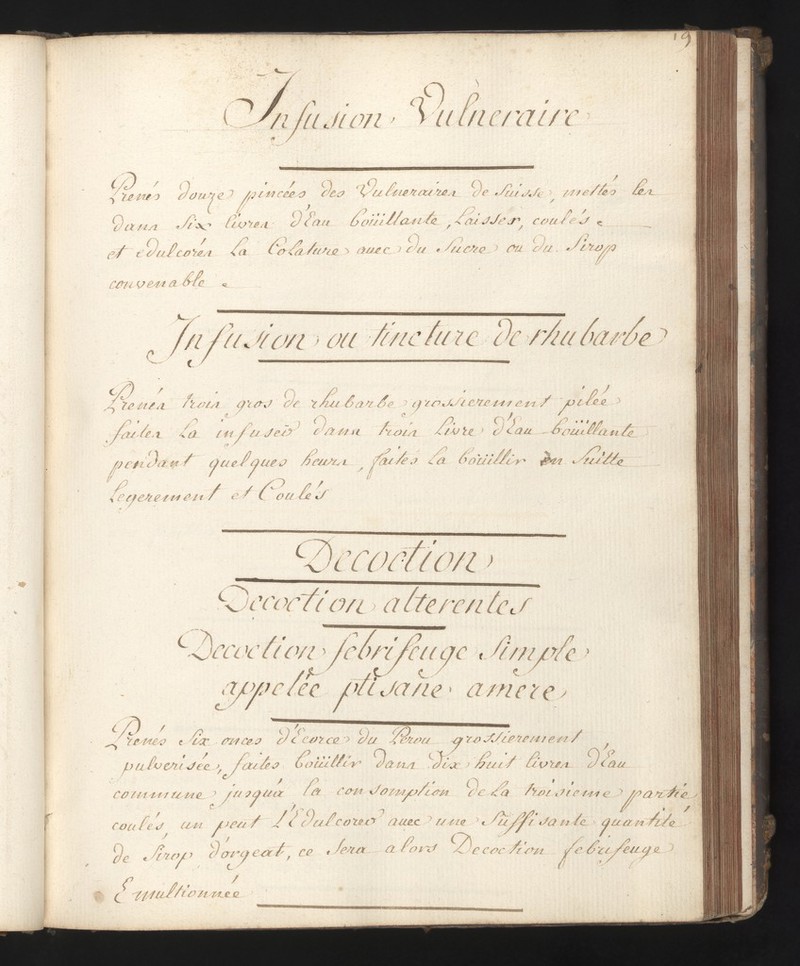 19
Infusion Vulneraire
Prenés douze pincées des Vulneraires de Suisse, mettés les
dans Six livres d'Eau boüillante, Laisser, coulés
et edulcorés La Colature auec du Sucre ou du Sirop
convenable
Infusion ou tincture de rhubarbe
Prenés trois gros de rhubarbe grossierement pilée
faites La infuser dans trois Livre d'Eau boüillante
pendant quelques heurs, faites La boüillir en Suitte
Legerement et Coulés
Decoction
Decoction alterentes
Decoction febrifeuge Simple
appelée ptisane amere
Prenés Six onces d'Ecorce du Perou grossierement
pulverisée, faites boüillir dans dix huit livres d'Eau
commune jusqu'a la consomption de La troisieme partie
coulés, un peut l'Edulcorer auec une Suffisante quantité
de Sirop d'orgeat, ce Sera alors Decoction febrifeuge
Emultionnée